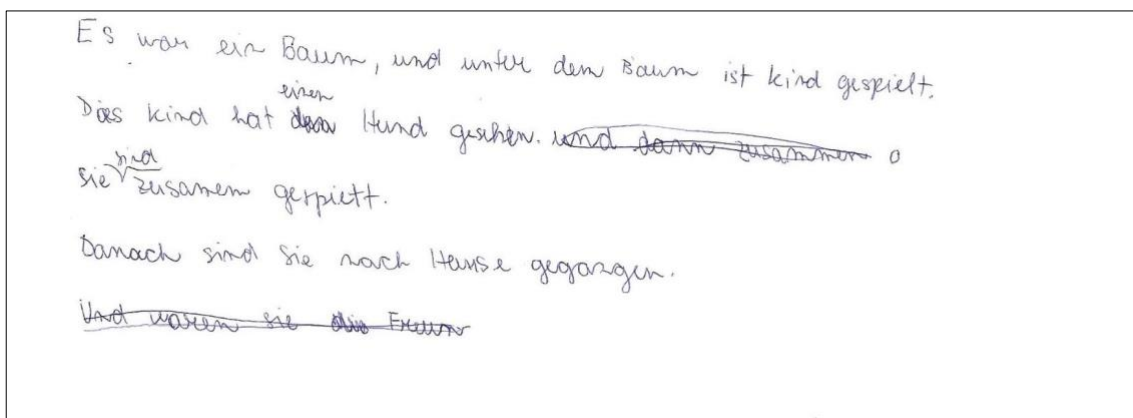 Es war ein Baum, und unter dem Baum ist kind gespielt.
einen
Dies kind hat Hund gesehen. und dann zusammen
sind
sie zusamem gespielt.
Danach sind sie nach Hause gegangen.
Und waren sie die Freun